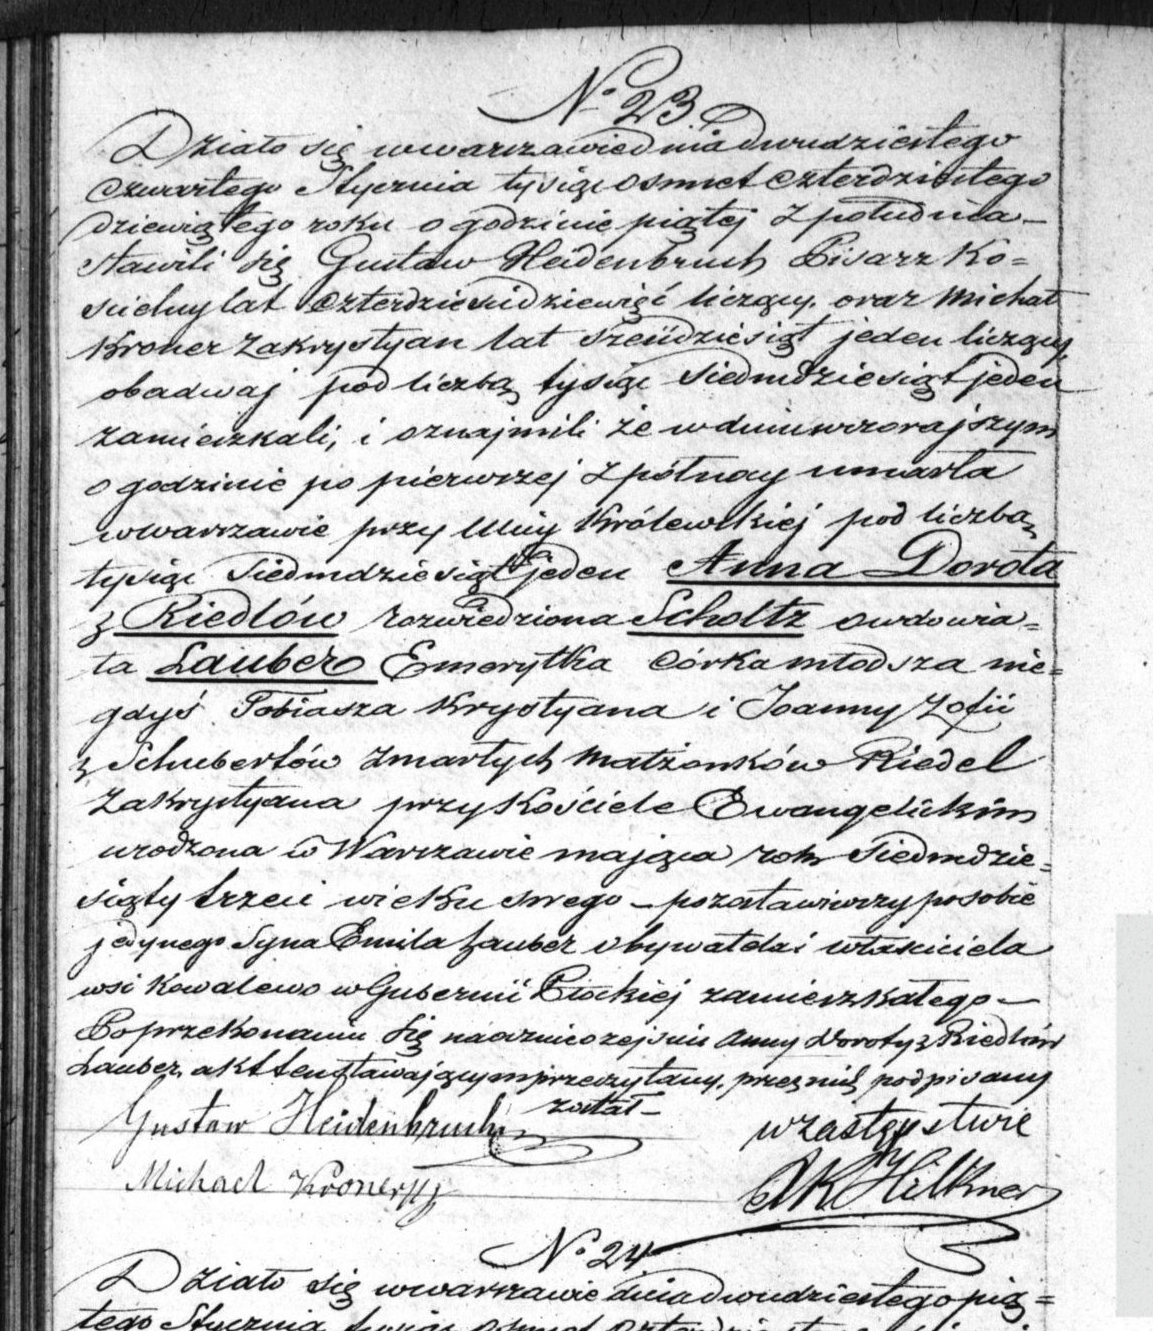 No 23.
Działo się w Warszawie dnia dwudziestego
czwartego Stycznia tysiąc osmset czterdziestego
dziewiątego roku o godzinie piątej z południa –
stawili się Gustaw Heidenbruch Pisarz Ko=
scielny lat czterdzieści dziewięć liczący, oraz Michał
Kroner Zakrystyan lat sześćdziesiąt jeden liczący,
obadwaj pod liczbą tysiąc siedmdziesiąt jeden
zamieszkali, i oznajmili że w dniu wczorajszym
o godzinie po pierwszej z północy umarła
w Warszawie przy Ulicy Królewskiej pod liczbą
tysiąc siedmdziesiąt jeden Anna Dorota
z Riedlów rozwiedziona Scholtz owdowia=
ła Lauber Emerytka córka młodsza nie=
gdyś Tobiasza Krystyana i Joanny Zofii
z Schubertów zmarłych małżonków Riedel
Zakrystyana przy Kościele Ewangelickim
urodzona w Warszawie mająca rok siedmdzie=
siąty trzeci wieku swego – pozostawiwszy po sobie
jedynego Syna Emila Lauber obywatela i właściciela
wsi Kowalewo w Gubernii Płockiej zamieszkałego –
Po przekonaniu się naocznie o zejściu Anny Doroty z Riedlów
Lauber, akt ten stawającym przeczytany, przez nich podpisany
został –
Gustaw Heidenbruch w zastępstwie
Michael Kroner AK Hilkner
No 24
Działo się w Warszawie dnia dwudziestego pią=
tego Stycznia tysiąc osmset